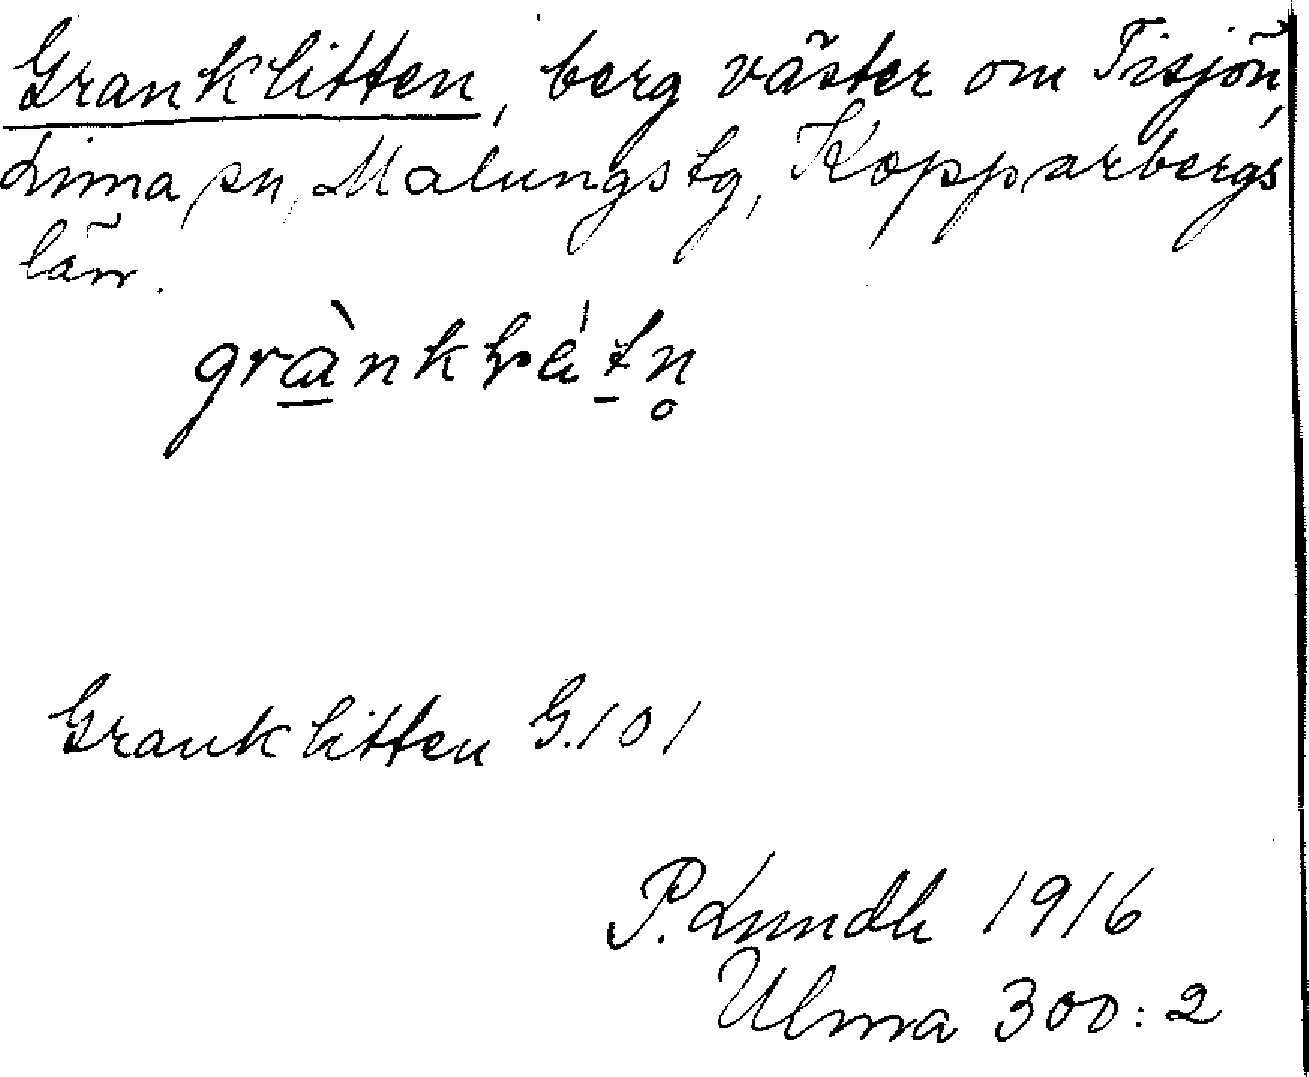 Granklitten, berg väster om Tisjön,
Lima sn, Malungs tg, Kopparbergs
län.
Granklitten G.101
P. Lundh 1916
Ulma 300:2